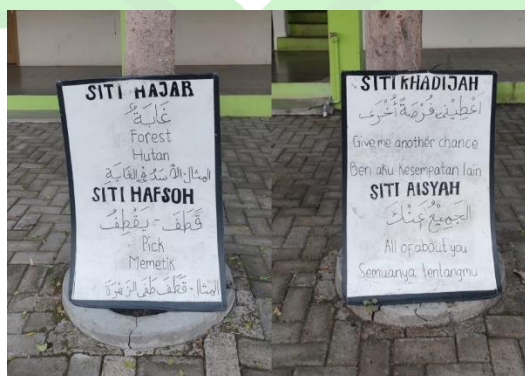 SITI HAJAR
غَابَةٌ
Forest
Hutan
المثال: الأسد في الغابة
SITI HAFSOH
قَطَفَ - يَقْطِفُ
Pick
Memetik
المثال: قطف الزهرة
SITI KHADIJAH
أَعْطِيْنِي فُرْصَةً أُخْرَى
Give me another chance
Beri aku kesempatan lain
SITI AISYAH
الجَمِيْعُ عَنْكَ
All of about you
Semuanya tentangmu